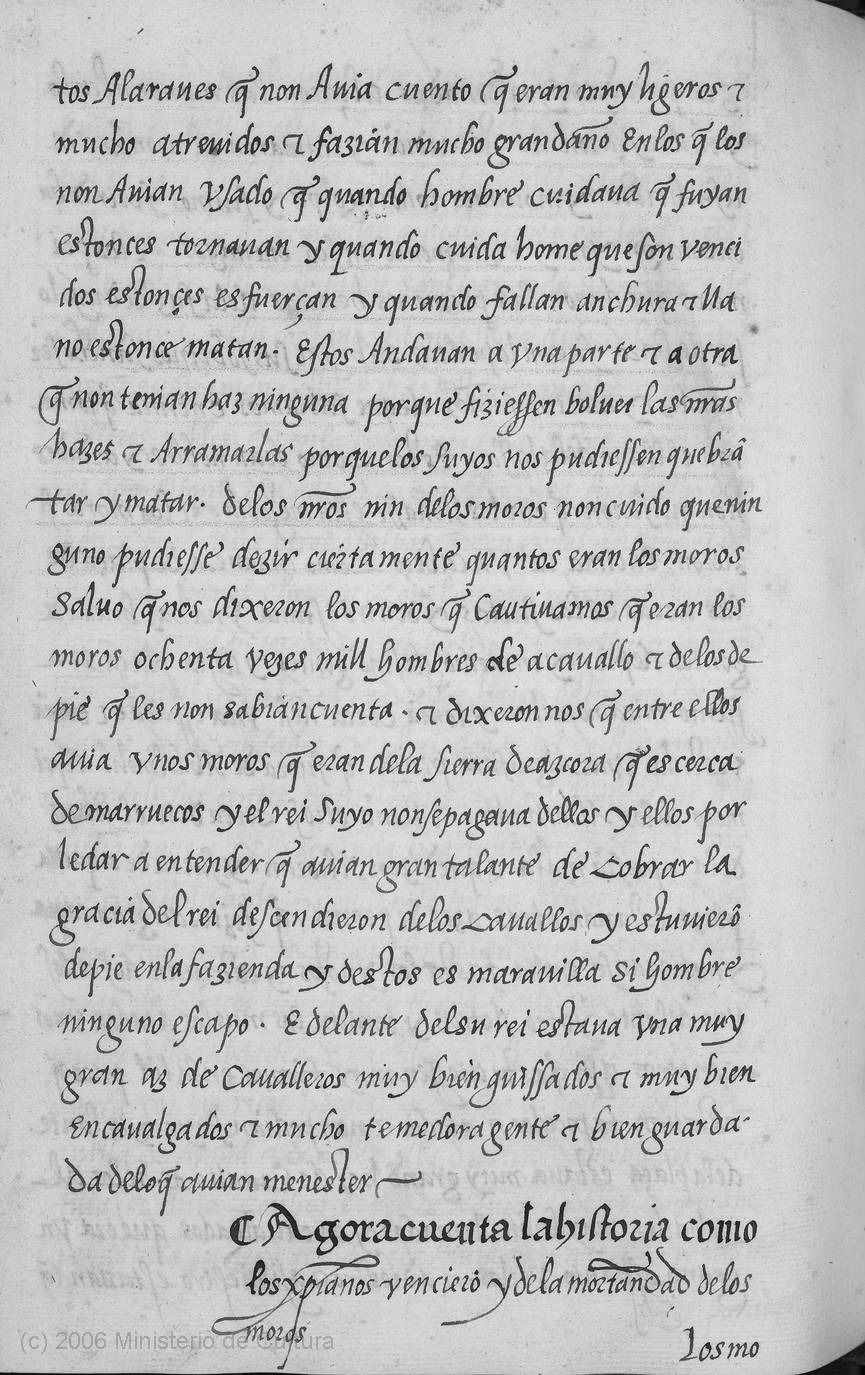 tos Alaraues q̃ non Auia cuento q̃ eran muy ligeros ⁊
mucho atreuidos ⁊ fazian mucho grandaño Enlos q̃ los
non Auian Vsado q̃ quando hombre cuidaua q̃ fuyan
estonces tornauan y quando cuida home que son venci
dos estonçes esfuerçan y quando fallan anchura ⁊ lla
no estonce matan. Estos Andauan a vna parte ⁊ a otra
q̃ non tenian haz ninguna porque fiziessen boluer las nr̃as
hazes ⁊ Arramarlas porquelos suyos nos pudiessen quebrã
tar y matar. delos nr̃os nin delos moros non cuido quenin
guno pudiesse dezir ciertamente quantos eran los moros
Saluo q̃ nos dixeron los moros q̃ Cautiuamos q̃ eran los
moros ochenta vezes mill hombres de acauallo ⁊ delos de
pie q̃ les non sabian cuenta. ⁊ dixeron nos q̃ entre ellos
auia vnos moros q̃ eran dela sierra deazcora q̃ es cerca
de marruecos y el rei Suyo non se pagaua dellos y ellos por
le dar a entender q̃ auian gran talante de Cobrar la
gracia del rei descendieron delos Cauallos y estuuierõ
de pie enla fazienda y destos es marauilla si hombre
ninguno escapo. E delante del su rei estaua vna muy
gran az de Caualleros muy bien guissados ⁊ muy bien
Encaualgados ⁊ mucho temedora gente ⁊ bien guarda-
da deloq̃ auian menester
¶ Agora cuenta la historia como
los xp̃ianos vencierõ y dela mortandad delos
moros
Los mo
(c) 2006 Ministerio de Cultura